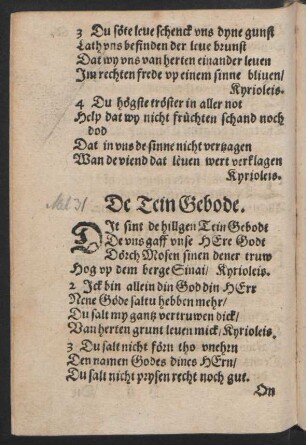 3 Du söte leue schenck vns dyne gunst
Lath vns befinden der leue brunst
Dat wy vns van herten einander leuen
Im rechten frede vp einem sinne bliuen/
Kyrioleis.
4 Du högste tröster in aller not
Help dat wy nicht früchten schand noch
dod
Dat in vns de sinne nicht vertzagen
Wan de viend dat leuen wert verklagen
Kyrioleis.
De Tein Gebode.
DIt sint de hilligen Tein Gebodt
De vns gaff vnse HEre Godt
Dörch Mosen sinen dener truw
Hog vp dem berge Sinai/ Kyrioleis.
2 Ick bin allein din God din HErr
Nene Göde saltu hebben mehr/
Du salt my gantz vertruwen dick/
Van herten grunt leuen mick/ Kyrioleis.
3 Du salt nicht förn tho vnehrn
Den namen Godes dines HErn/
Du salt nicht prysen recht noch gut.
On